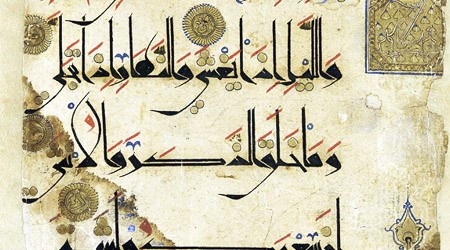 وَاللَّيْلِ إِذَا يَغْشَىٰ وَالنَّهَارِ إِذَا تَجَلَّىٰ
وَمَا خَلَقَ الذَّكَرَ وَالْأُنثَىٰ